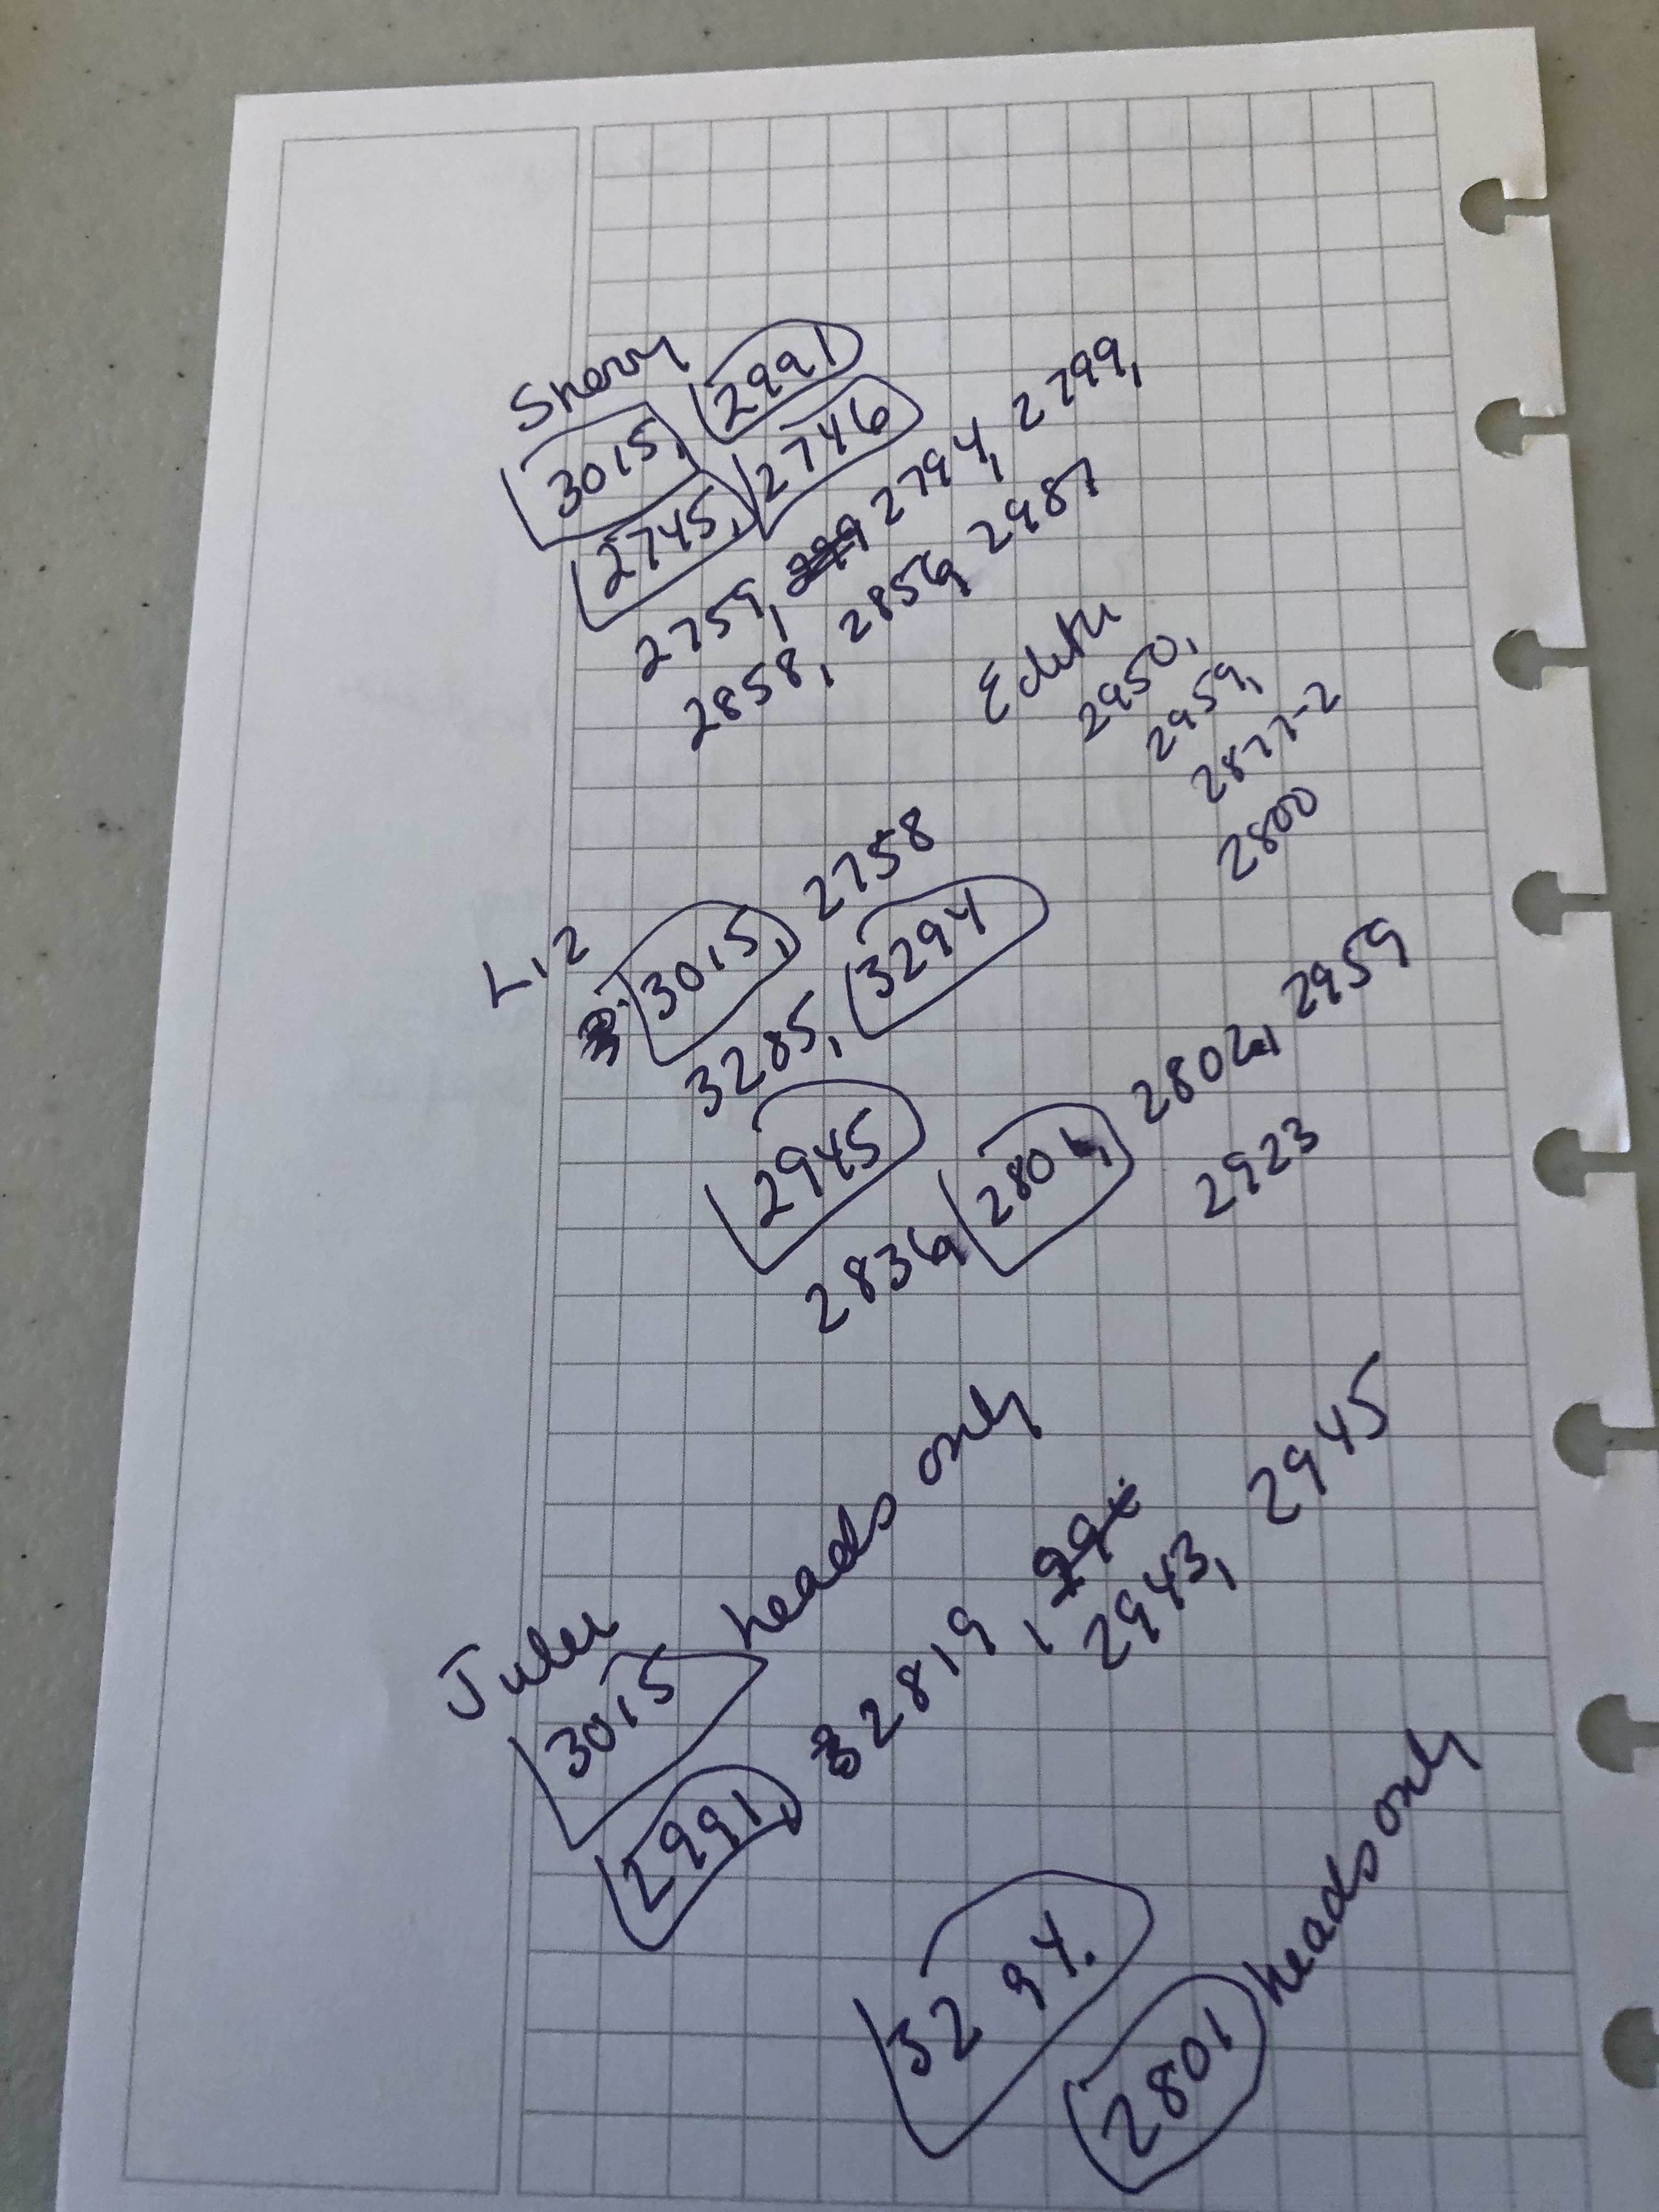 Sherry
3015, 2991
2745, 2746
2759, 2794, 2799,
2858, 2856, 2987
Edith
2950,
2959,
2877-2
2800
Liz
3015, 2758
3285, 3294
2945
2836, 2801, 2802, 2959
2923
Julie
3015 heads only
2991, 2819,
2943, 2945
3294.
2801 heads only